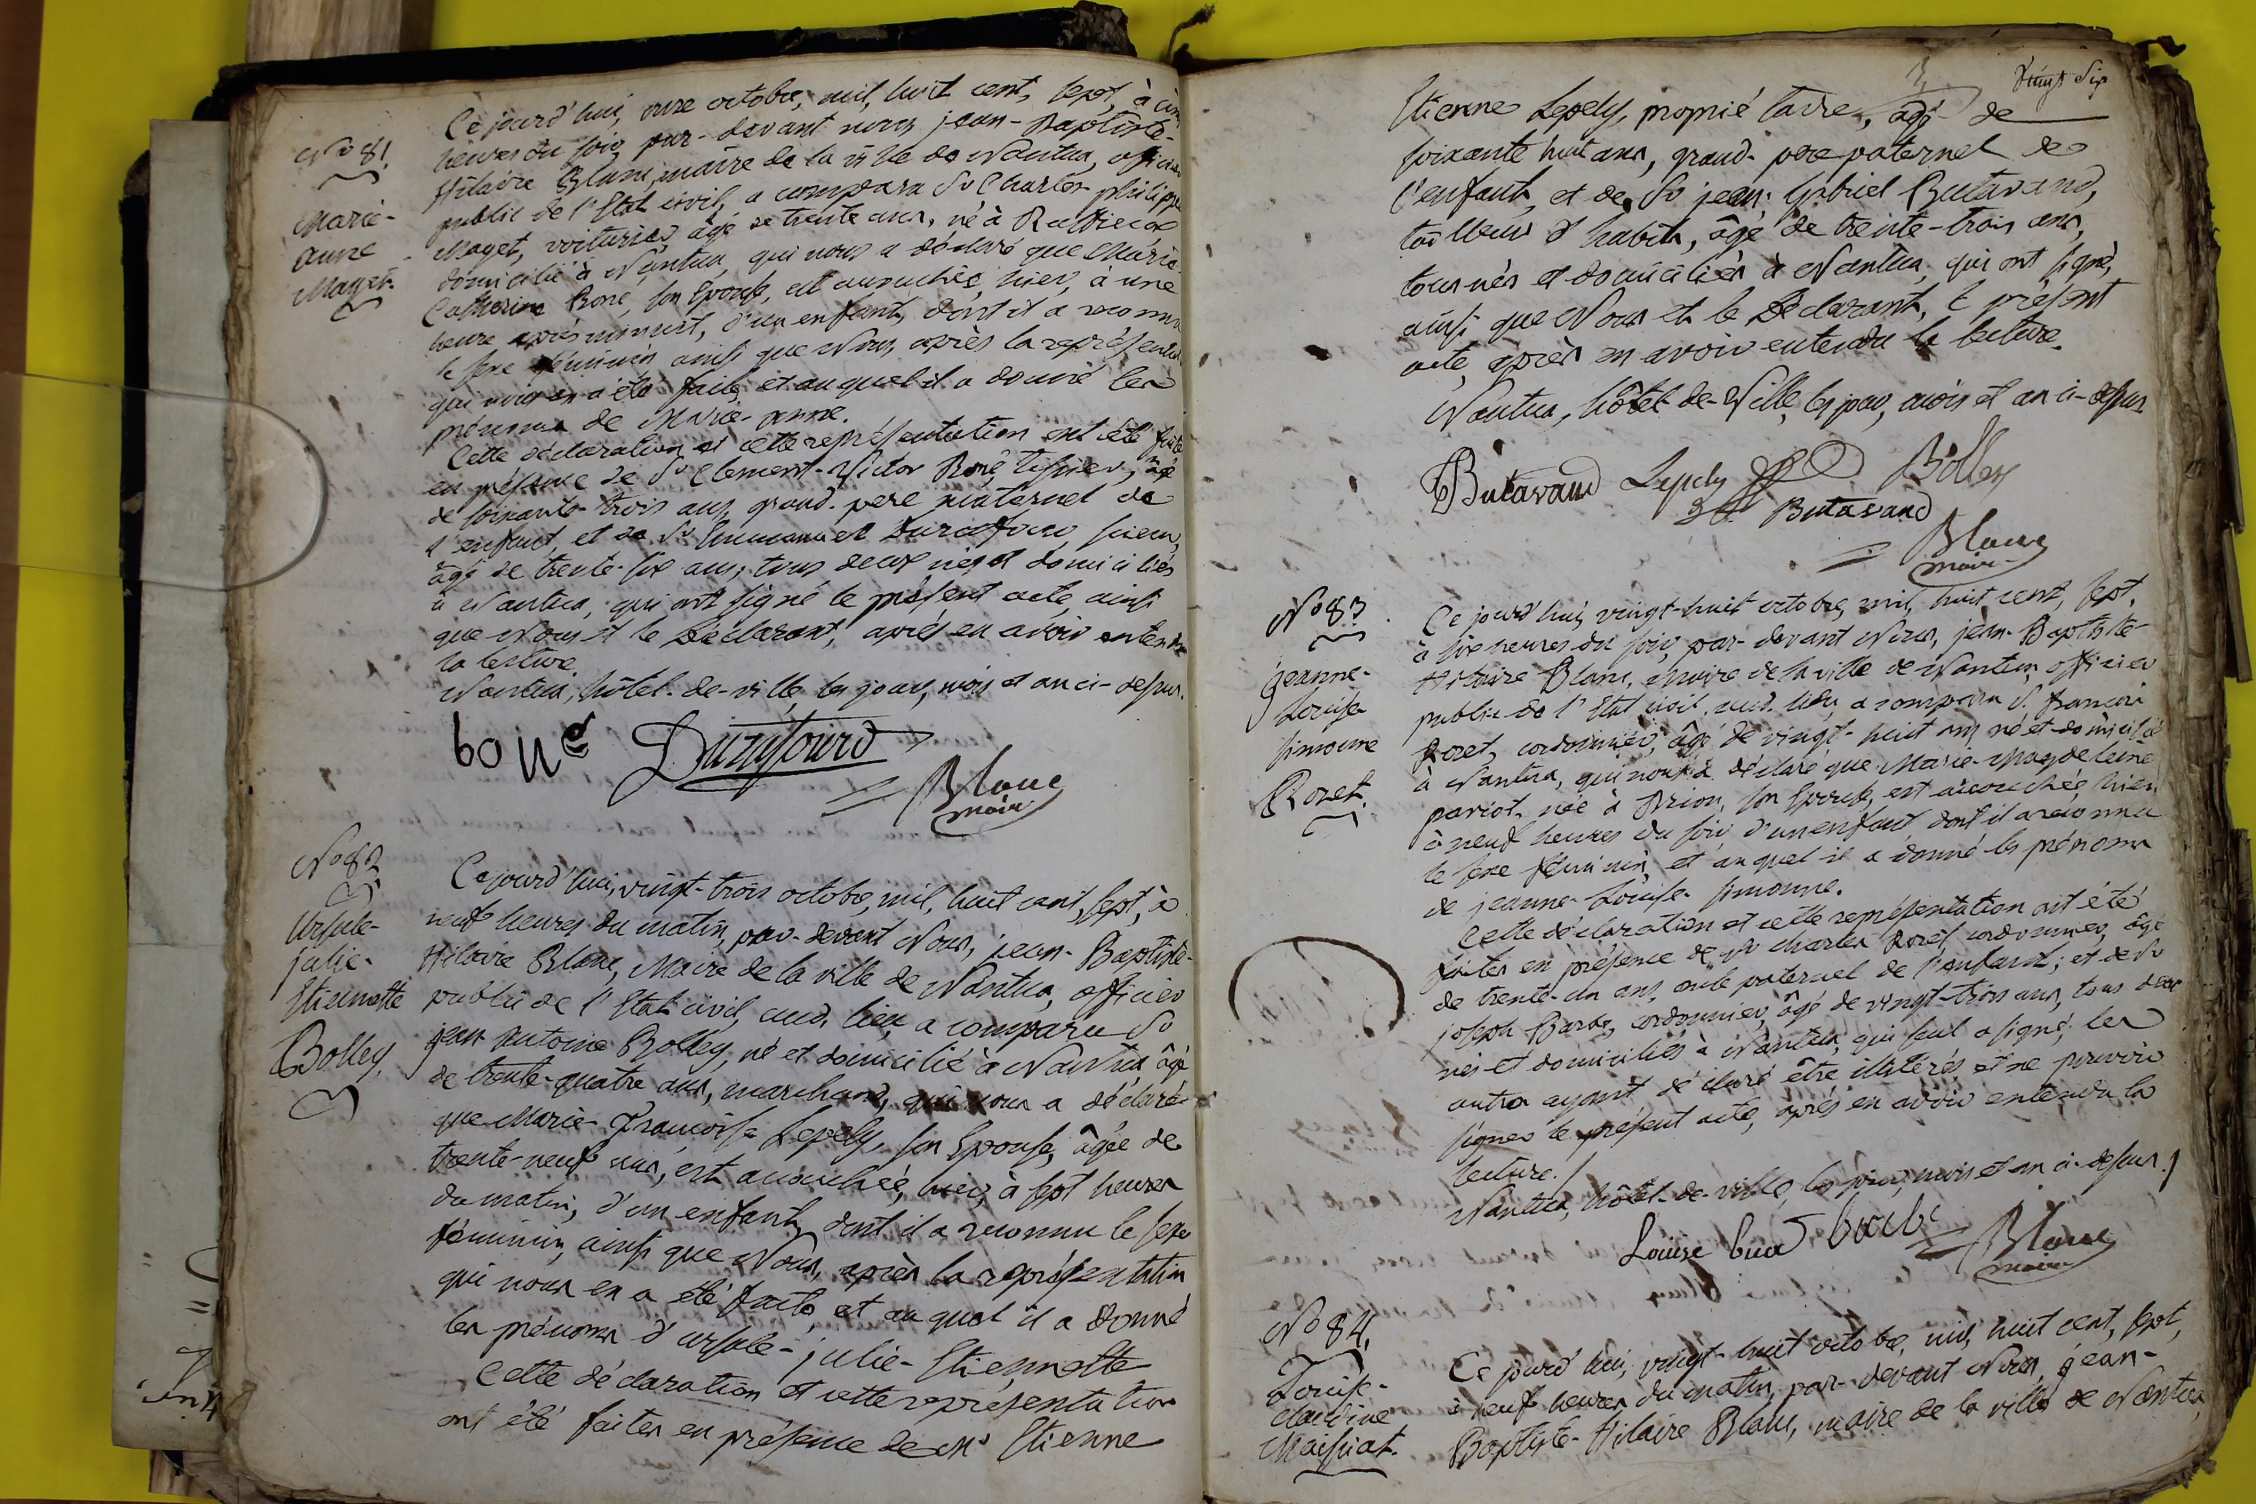 Ce jourd'hui, onze octobre, mil, huit cent, sept, à cinq
heures du soir, par-devant nous jean-Baptiste-
Hilaire Blanc, maire de la ville de Nantua, officier
public de l'Etat civil, a comparu Sr Charles philippe
Mayet, voiturier, âgé de trente ans, né à Ruffieux
domicilié à Nantua, qui nous a déclaré que Marie-
Catherine Boné, son Epouse, est accouchée, hier, à une
heure après minuit, d'un enfant, dont il a reconnu
le sexe féminin ainsi que Nous, après la représentation
qui nous en a été faite, et auquel il a donné les
prénoms de Marie-anne.
Cette déclaration et cette représentation ont été faites
en présence de Sr Clement-Victor Boné, tissier, âgé
de soixante-trois ans, grand-pere maternel de
l'enfant, et de Sr Emmanuel Durafour, scieur,
âgé de trente-six ans, tous deux nés et domiciliés
à Nantua, qui ont signé le présent acte, ainsi
que Nous et le Déclarant, après en avoir entendu
la lecture.
Nantua, hôtel-de-ville, les jour, mois et an ci-dessus.
Boné Durafourd
Blanc
maire
No 81.
Marie-
anne
Mayet.
No 82
Ursule-
julie-
Etiennette
Bolley.
Ce jourd'hui, vingt-trois octobre, mil, huit cent, sept, à
neuf heures du matin, par-devant Nous, jean-Baptiste-
Hilaire Blanc, Maire de la ville de Nantua, officier
public de l'Etat civil, aud. lieu, a comparu Sr
jean Antoine Bolley, né et domicilié à Nantua âgé
de trente-quatre ans, marchand, qui nous a déclaré
que Marie-Françoise Lepely, son Epouse, âgée de
trente-neuf ans, est accouchée, hier, à sept heures
du matin, d'un enfant, dont il a reconnu le sexe
féminin, ainsi que Nous, après la représentation
qui nous en a été faite, et auquel il a donné
les prénoms d'ursule-julie-Etiennette
Cette déclaration et cette représentation
ont été faites en présence de Mr Etienne
Vingt six
Etienne Lepely, propriétaire, âgé de
soixante huit ans, grand-pere paternel de
l'enfant, et de Sr jean-Gabriel Butavand,
tailleur d'habits, âgé de trente-trois ans,
tous nés et domiciliés à Nantua, qui ont signé,
ainsi que Nous et le Déclarant, le présent
acte, après en avoir entendu la lecture.
Nantua, hôtel-de-Ville, les jour, mois et an ci-dessus
Butavand Lepely Bolley
Butavand
Blanc
maire
No 83
jeanne-
Louise
simonne
Roret.
Ce jourd'hui, vingt-huit octobre, mil, huit cent, sept,
à six heures du soir, par-devant Nous, jean-Baptiste-
Hilaire Blanc, maire de la ville de Nantua, officier
public de l'Etat civil, aud. lieu, a comparu S. francois
Roret, cordonnier, âgé de vingt-huit ans, né et domicilié
à Nantua, qui nous a déclaré que Marie-Magdeleine
pariot, née à Brion, son Epouse, est accouchée, hier,
à neuf heures du soir, d'un enfant, dont il a reconnu
le sexe féminin, et auquel il a donné les prénoms
de jeanne-Louise-simonne.
Cette déclaration et cette représentation ont été
faites en présence de Sr charles Roret, cordonnier, âgé
de trente-un ans, oncle paternel de l'enfant; et de Sr
joseph Barbe, cordonnier, âgé de vingt-trois ans, tous deux
nés et domiciliés à Nantua, qui seul a signé; les
autres ayant déclaré être illitérés et ne pouvoir
signer le présent acte, après en avoir entendu la
lecture./
Nantua, hôtel-de-ville, les jour, mois et an ci-dessus./
barbe Blanc
maire
No 84.
Louise-
claudine
Maissiat.
Ce jourd'hui, vingt-huit octobre, mil, huit cent, sept,
à neuf heures du matin, par-devant Nous, jean-
Baptiste-Hilaire Blanc, maire de la ville de Nantua,